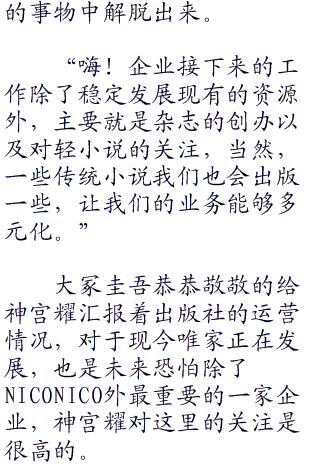 的事物中解脱出来。
“嗨！企业接下来的工
作除了稳定发展现有的资源
外，主要就是杂志的创办以
及对轻小说的关注，当然，
一些传统小说我们也会出版
一些，让我们的业务能够多
元化。”
大冢圭吾恭恭敬敬的给
神宫耀汇报着出版社的运营
情况，对于现今唯家正在发
展，也是未来恐怕除了
NICONICO外最重要的一家企
业，神宫耀对这里的关注是
很高的。